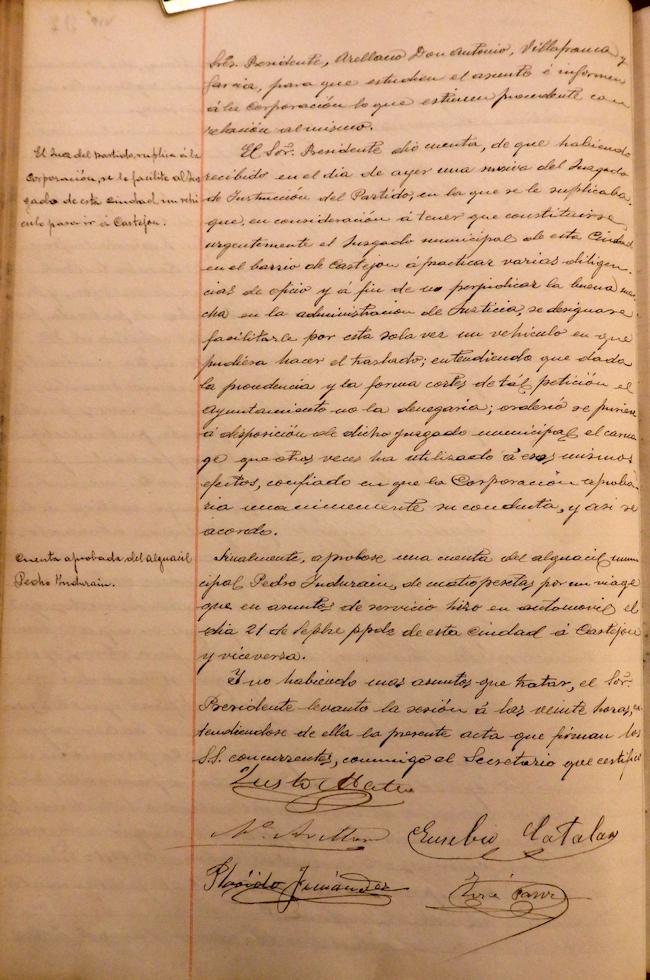 Sres. Presidente, Arellano Don Antonio, Villafranca y
Garcia, para que estudien el asunto é informen
á la Corporación lo que estimen procedente con
relación al mismo.
El Juez del Partido, suplica á la
Corporación, se le facilite al Juz
gado de esta ciudad un vehi
culo para ir á Castejon.
El Sor. Presidente dió cuenta, de que habiendo
recibido en el dia de ayer una misiva del Juzgado
de Instrucción del Partido, en la que se le suplicaba
que, en consideración á tener que constituirse
urgentemente el Juzgado municipal de esta Ciudad
en el barrio de Castejon á practicar varias diligen
cias de oficio y á fin de no perjudicar la buena mar
cha en la administracion de Justicia, se designase
facilitarle por esta sola vez un vehículo en que
pudiera hacer el traslado; entendiendo que dada
la procedencia y la forma cortes de tál petición el
Ayuntamiento no la denegaria; ordenó se pusiera
á disposición de dicho juzgado municipal el carrua
ge que otras veces ha utilizado á esos mismos
efectos, confiado en que la Corporación aproba
ria unanimemente su conducta, y asi se
acordo.
Cuenta aprobada del alguacil
Pedro Yndurain.
Finalmente, aprobose una cuenta del alguacil muni
cipal Pedro Yndurain, de cuatro pesetas por un viage
que en asuntos de servicio hizo en automovil el
dia 21 de Sepbre ppdo de esta ciudad á Castejon
y viceversa.
Y no habiendo mas asuntos que tratar, el Sor.
Presidente levanto la sesión á las veinte horas, ex
tendiendose de ella la presente acta que firman los
S.S. concurrentes, conmigo el Secretario que certifico
Justo Mateo
Eusebio Catalan
Plácido Fernández
José